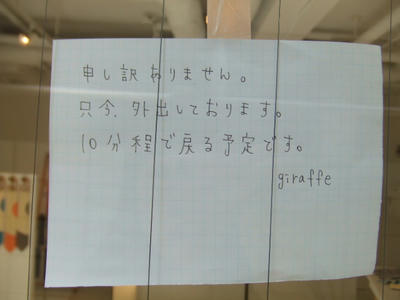 申し訳ありません。
只今、外出しております。
10分程で戻る予定です。
giraffe